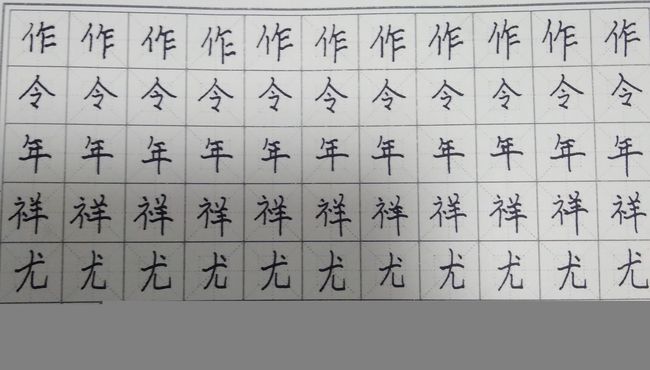 作作作作作作作作作作作
令令令令令令令令令令令
年年年年年年年年年年年
祥祥祥祥祥祥祥祥祥祥祥
尤尤尤尤尤尤尤尤尤尤尤